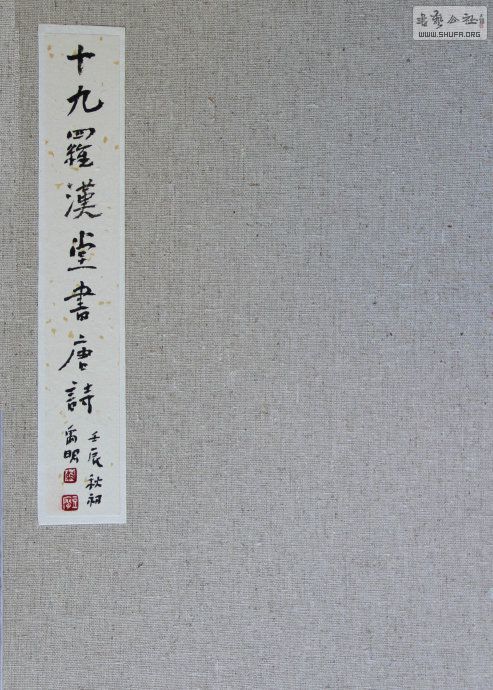 十九羅漢堂書唐詩
壬辰秋初
禹明
WWW.SHUFA.ORG